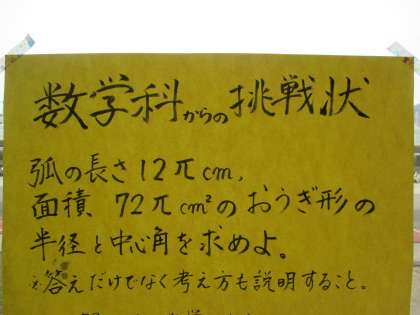 数学科からの挑戦状
弧の長さ12πcm、
面積、72πcm²のおうぎ形の
半径と中心角を求めよ。
※答えだけでなく考え方も説明すること。